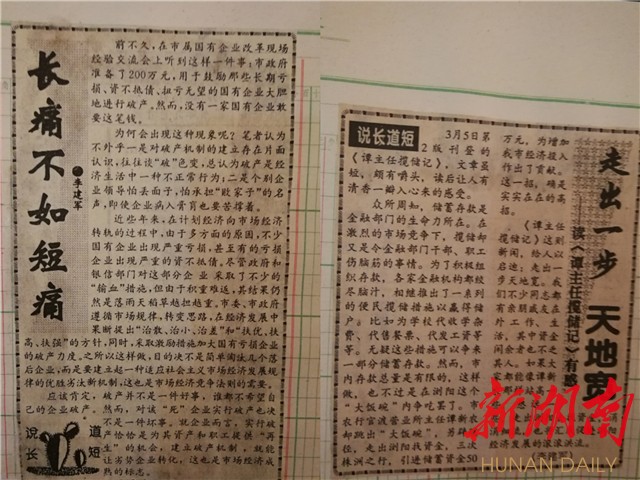 长痛不如短痛
李建军
前不久，在市属国有企业改革现场
经验交流会上听到这样一件事：市政府
准备了200万元，用于鼓励那些长期亏
损、资不抵债、扭亏无望的国有企业大胆
地进行破产。然而，没有一家国有企业敢
要这笔钱。
为何会出现这种现象呢？笔者认为
不外乎一是对破产机制的建立存在片面
认识，往往谈“破”色变，总认为破产是经
济生活中一种不正常行为；二是个别企
业领导怕丢面子，怕承担“败家子”的名
声，即使企业病入膏肓也要苦撑着。
近些年来，在计划经济向市场经济
转轨的过程中，由于多方面的原因，不少
国有企业出现严重亏损，甚至有的亏损
企业出现严重的资不抵债，尽管政府和
银信部门对这部分企业采取了不少的
“输血”措施，但由于积重难返，其结果仍
然是落雨天稻草越担越重。市委、市政府
遵循市场规律，转变思路，在经济发展中
果断提出“治散、治小、治差”和“扶优、扶
高、扶强”的方针，同时，采取激励措施加大国有亏损企业
的破产力度。之所以这样做，目的决不是简单淘汰几个落
后企业，而是要建立起一种适应社会主义市场经济发展规
律的优胜劣汰新机制，这也是市场经济竞争法则的需要。
应该肯定，破产并不是一件好事，谁都不希望自
己的企业破产。然而，对该“死”企业实行破产也决
不是一件坏事，就企业而言，实行破
产恰恰是为其资产和职工提供“再
生”的机会，建立破产机制，就能
让劣势企业转化，这也是市场经济成
熟的标志。
说长道短
说长道短
走出一步 天地宽
读《谭主任揽储记》有感
3月5日第
2版刊登的
《谭主任揽储记》，文章虽
短，颇有嚼头，读后让人有
清香一瓣入心来的感受。
众所周知，储蓄存款是
金融部门的生命力所在。在
激烈的市场竞争下，揽储却
又是令金融部门干部、职工
伤脑筋的事情。为了积极组
织存款，各家金融机构都绞
尽脑汁，相继推出了一系列
的便民揽储措施以赢得储
户。比如为学校代收学杂
费、代售餐票、代发工资等
等。无疑这些措施可以争来
一部分储蓄存款。然而，市
内存款总量是有限的，这样
做，也不过是在浏阳这个
“大饭碗”内争吃罢了。市
农行官渡营业所主任谭新农
却跳出“大饭碗”，第四次
走出浏阳找资金，三次
株洲之行，引进储蓄资金50
万元，为增加
我市经济投入
作出了贡献。
这一招，确是
实实在在的高
招。
《谭主任
揽储记》这则
新闻，给人以
启迪：走出一
步天地宽。我
们不少同志都
有亲朋戚友在
外工作、生
活，其中资金
闲余者也不乏
其人。如果大
家都能像谭新
经济发展的滚滚洪流。
新湖南
HUNAN DAILY